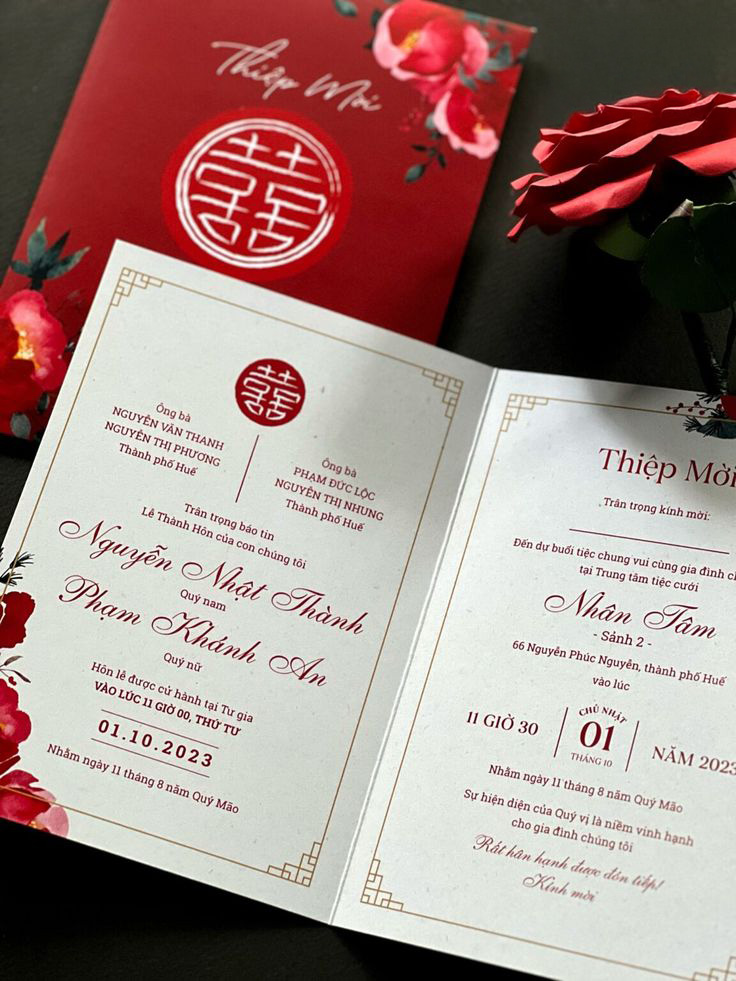 Thiệp Mời
囍
囍
Ông bà
NGUYỄN VĂN THANH
NGUYỄN THỊ PHƯƠNG
Thành phố Huế
Ông bà
PHẠM ĐỨC LỘC
NGUYỄN THỊ NHUNG
Thành phố Huế
Trân trọng báo tin
Lễ Thành Hôn của con chúng tôi
Nguyễn Nhật Thành
Quý nam
Phạm Khánh An
Quý nữ
Hôn lễ được cử hành tại Tư gia
VÀO LÚC 11 GIỜ 00, THỨ TƯ
01.10.2023
Nhằm ngày 11 tháng 8 năm Quý Mão
Thiệp Mời
Trân trọng kính mời:
Đến dự buổi tiệc chung vui cùng gia đình
tại Trung tâm tiệc cưới
Nhân Tâm
- Sảnh 2 -
66 Nguyễn Phúc Nguyên, thành phố Huế
vào lúc
11 GIỜ 30
CHỦ NHẬT
01
THÁNG 10
NĂM 2023
Nhằm ngày 11 tháng 8 năm Quý Mão
Sự hiện diện của Quý vị là niềm vinh hạnh
cho gia đình chúng tôi
Rất hân hạnh được đón tiếp!
Kính mời